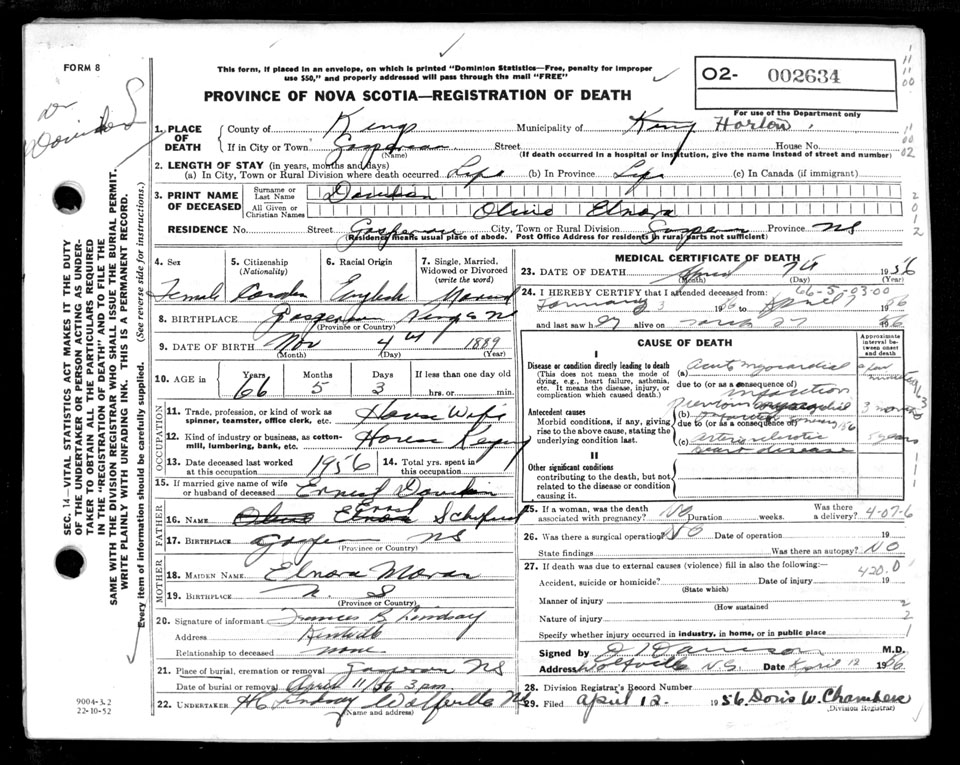 FORM 8
This form, if placed in an envelope, on which is printed "Dominion Statistics—Free, penalty for improper
use $50," and properly addressed will pass through the mail "FREE"
PROVINCE OF NOVA SCOTIA—REGISTRATION OF DEATH
02- 002634
For use of the Department only
1. PLACE OF DEATH
County of Kings Municipality of Kings Horton
If in City or Town Gaspereau Street House No.
(Name) (If death occurred in a hospital or institution, give the name instead of street and number)
2. LENGTH OF STAY (in years, months and days)
(a) In City, Town or Rural Division where death occurred Life (b) In Province Life (c) In Canada (if immigrant)
3. PRINT NAME OF DECEASED
Surname or Last Name Davidson
All Given or Christian Names Olive Elnora
RESIDENCE No. Street Gaspereau City, Town or Rural Division Province NS
(Residency means usual place of abode. Post Office Address for residents in rural parts not sufficient)
4. Sex
Female
5. Citizenship (Nationality)
6. Racial Origin
English
7. Single, Married, Widowed or Divorced (write the word)
Married
8. BIRTHPLACE Gaspereau Kings NS
(Province or Country)
9. DATE OF BIRTH Nov 4th 1889
(Month) (Day) (Year)
10. AGE in Years Months Days If less than one day old
66 5 3 hrs. or min.
OCCUPATION
11. Trade, profession, or kind of work as
spinner, teamster, office clerk, etc. House Wife
12. Kind of industry or business, as cotton-
mill, lumbering, bank, etc. House Keeping
13. Date deceased last worked
at this occupation 1956
14. Total yrs. spent in
this occupation
15. If married give name of wife
or husband of deceased Ernest Davidson
FATHER
16. NAME
17. BIRTHPLACE NS
(Province or Country)
MOTHER
18. MAIDEN NAME Elnora
19. BIRTHPLACE N. S
(Province or Country)
20. Signature of informant Frances B Lindsay
Address Kentville
Relationship to deceased none
21. Place of burial, cremation or removal Gaspereau NS
Date of burial or removal April 11/56 3 pm
22. UNDERTAKER HC Lindsay Wolfville NS
(Name and address)
MEDICAL CERTIFICATE OF DEATH
23. DATE OF DEATH April 7th 1956
(Month) (Day) (Year)
66-5-03-00
24. I HEREBY CERTIFY that I attended deceased from:
January 3 1956 to April 7 1956
and last saw her alive on March 27 1956
CAUSE OF DEATH
Approximate interval between onset and death
I
Disease or condition directly leading to death
(This does not mean the mode of
dying, e.g., heart failure, asthenia,
etc. It means the disease, injury, or
complication which caused death.)
(a) Acute myocardial
due to (or as a consequence of)
infarction
a few minutes
Antecedent causes
Morbid conditions, if any, giving
rise to the above cause, stating the
underlying condition last.
Previous
(b)
due to (or as a consequence of)
3 months
(c) arteriosclerotic
heart disease
5 years
II
Other significant conditions
contributing to the death, but not
related to the disease or condition
causing it.
25. If a woman, was the death
associated with pregnancy? NO Duration weeks. Was there
a delivery? 4-07-6
26. Was there a surgical operation? NO Date of operation 19
State findings Was there an autopsy? NO
27. If death was due to external causes (violence) fill in also the following:—
420.0
Accident, suicide or homicide? Date of injury 19
(State which)
Manner of injury
(How sustained)
Nature of injury
Specify whether injury occurred in industry, in home, or in public place
Signed by M.D.
Address Wolfville N.S. Date April 12 1956
28. Division Registrar's Record Number
29. Filed April 12 1956. Doris W. Chambers
(Division Registrar)
SEC. 14—VITAL STATISTICS ACT MAKES IT THE DUTY
OF THE UNDERTAKER OR PERSON ACTING AS UNDER-
TAKER TO OBTAIN ALL THE PARTICULARS REQUIRED
IN THE "REGISTRATION OF DEATH" AND TO FILE THE
SAME WITH THE DIVISION REGISTRAR WHO SHALL ISSUE THE BURIAL PERMIT.
WRITE PLAINLY WITH UNFADING INK. THIS IS A PERMANENT RECORD.
Every item of information should be carefully supplied. (See reverse side for instructions.)
9004-3.2
22-10-52